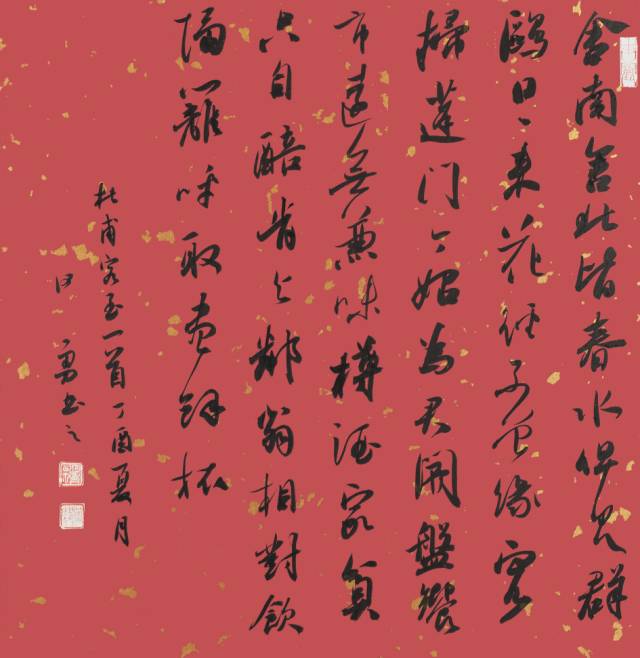 舍南舍北皆春水但見群
鷗日々來花徑不曾緣客
掃蓬門今始為君開盤飧
市遠無兼味樽酒家貧
只自醅肯与鄰翁相對飲
隔籬呼取盡餘杯
杜甫客至一首丁酉夏月
勇書之